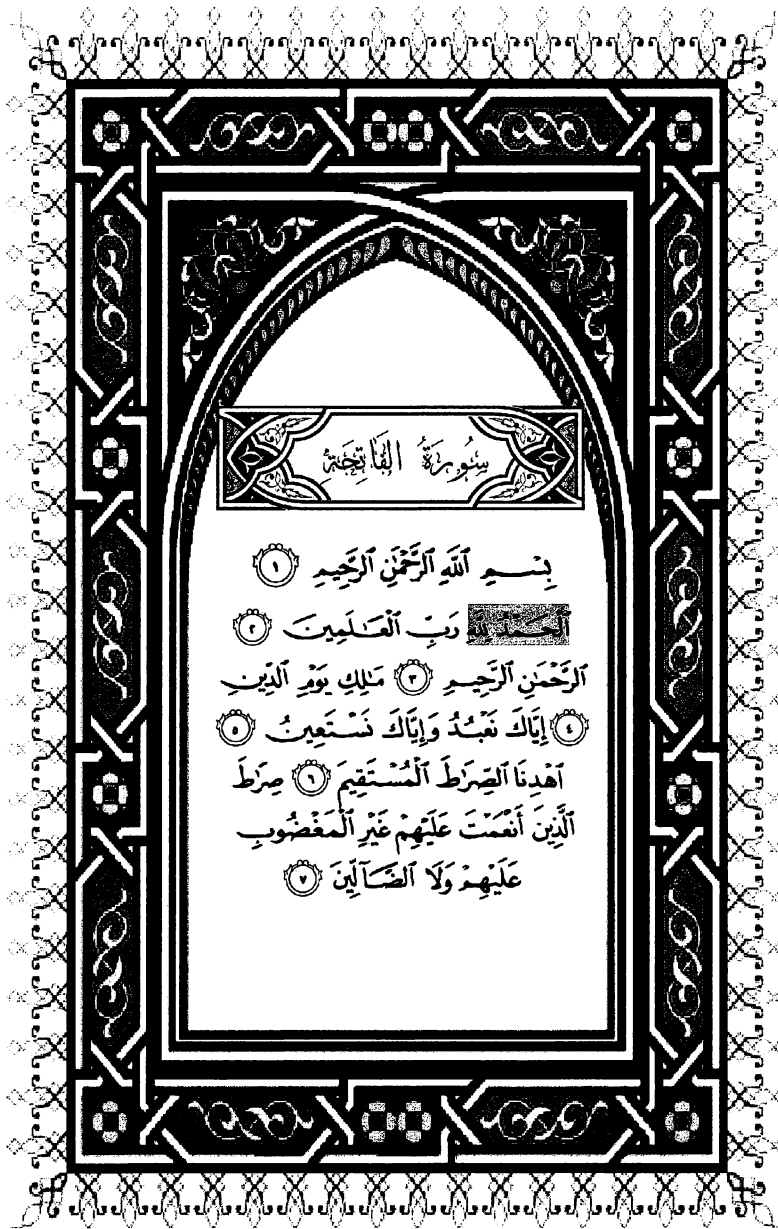 سُورَةُ الْفَاتِحَةِ
بِسْمِ ٱللَّهِ ٱلرَّحْمَٰنِ ٱلرَّحِيمِ ١
ٱلْحَمْدُ لِلَّهِ رَبِّ ٱلْعَٰلَمِينَ ٢
ٱلرَّحْمَٰنِ ٱلرَّحِيمِ ٣ مَٰلِكِ يَوْمِ ٱلدِّينِ
٤ إِيَّاكَ نَعْبُدُ وَإِيَّاكَ نَسْتَعِينُ ٥
ٱهْدِنَا ٱلصِّرَٰطَ ٱلْمُسْتَقِيمَ ٦ صِرَٰطَ
ٱلَّذِينَ أَنْعَمْتَ عَلَيْهِمْ غَيْرِ ٱلْمَغْضُوبِ
عَلَيْهِمْ وَلَا ٱلضَّآلِّينَ ٧